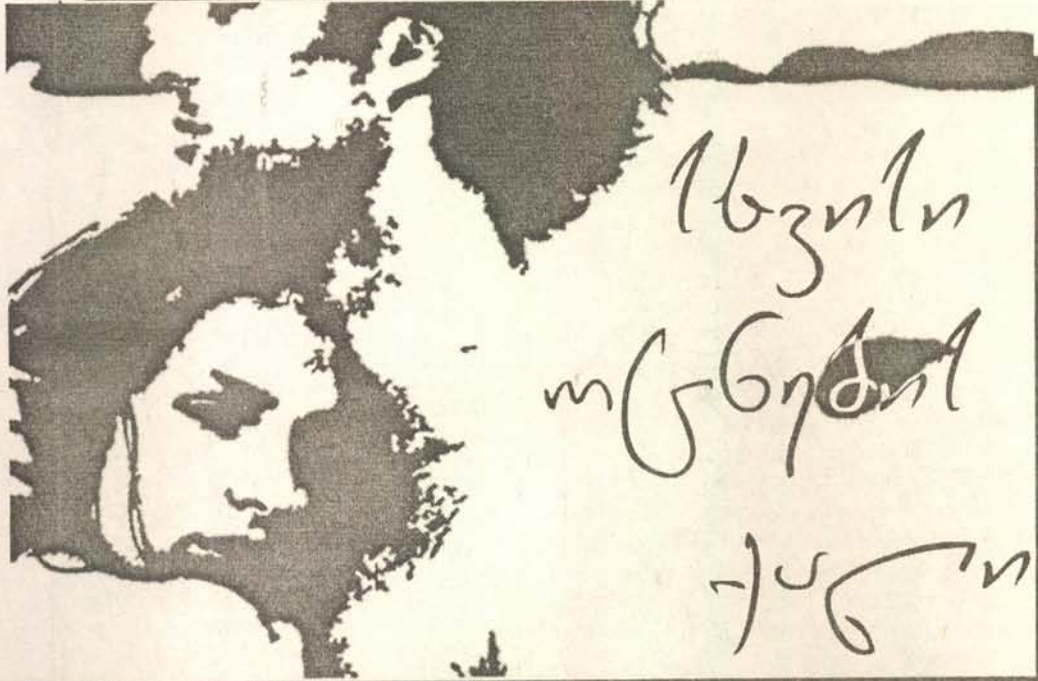 სხვისი
ოცნების
ქალი